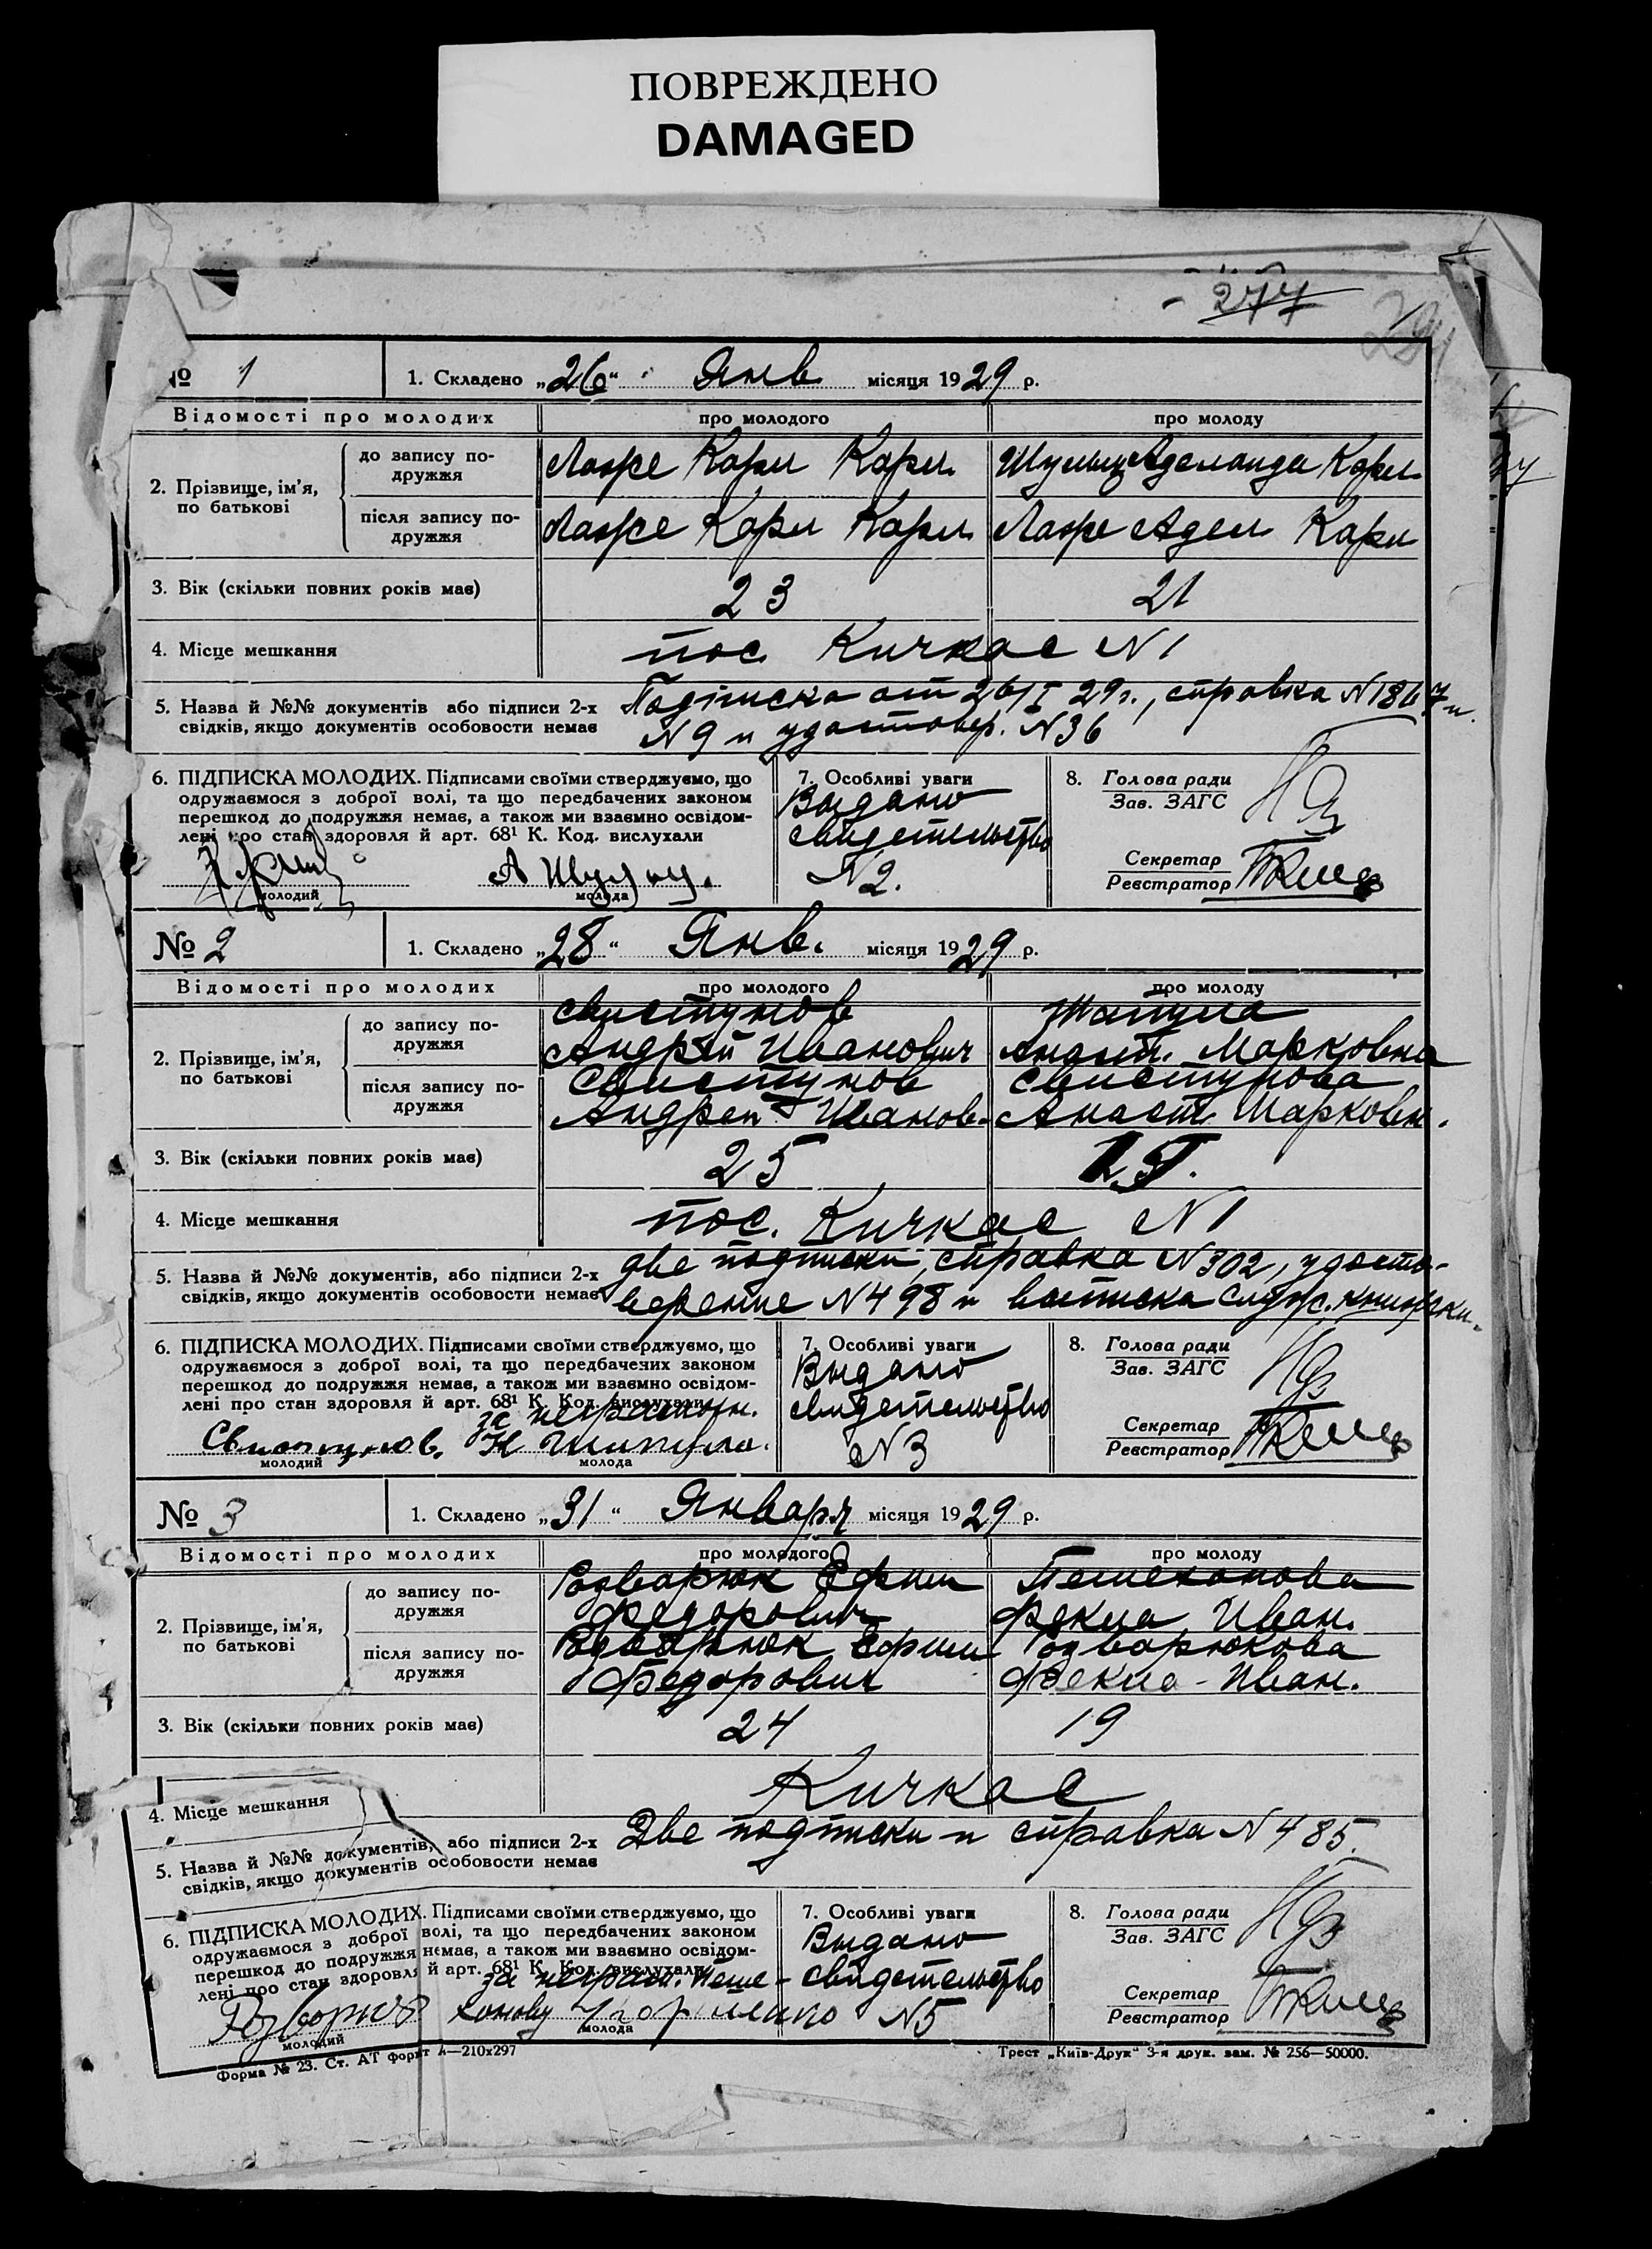 ПОВРЕЖДЕНО
DAMAGED
277
№ 1
1. Складено „26“ Янв місяця 1929 р.
Відомості про молодих
про молодого
про молоду
2. Прізвище, ім’я, по батькові
до запису по-
дружжя
Карл Карл.
Шульц Аделаида Карл.
після запису по-
дружжя
Карл Карл.
Адел. Карл
3. Вік (скільки повних років має)
23
21
4. Місце мешкання
пос. Кичкас N 1
5. Назва й №№ документів або підписи 2-х
свідків, якщо документів особовости немає
Подписка от 26/I 29 г., справка N 1867 и
N 9 и удостовер. N 36
6. ПІДПИСКА МОЛОДИХ. Підписами своїми стверджуємо, що
одружаємося з доброї волі, та що передбачених законом
перешкод до подружжя немає, а також ми взаємно освідом-
лені про стан здоровля й арт. 68¹ К. Код. вислухали
А Шульц.
молодий
молода
7. Особливі уваги
Выдано
свидетельство
N 2.
8. Голова ради
Зав. ЗАГС
Секретар
Реєстратор
№ 2
1. Складено „28“ Янв. місяця 1929 р.
Відомості про молодих
про молодого
про молоду
2. Прізвище, ім’я,
по батькові
до запису по-
дружжя
Свистунов
Андрей Иванович
Шапула
Анаст. Марковна
після запису по-
дружжя
Свистунов
Андрей Иванов.
Свистунова
Анаст. Марковн.
3. Вік (скільки повних років має)
25
4. Місце мешкання
пос. Кичкас N 1
5. Назва й №№ документів, або підписи 2-х
свідків, якщо документів особовости немає
две подписки, справка N 302, удосто-
верение N 498 и выписка служ. книжки.
6. ПІДПИСКА МОЛОДИХ. Підписами своїми стверджуємо, що
одружаємося з доброї волі, та що передбачених законом
перешкод до подружжя немає, а також ми взаємно освідом-
лені про стан здоровля й арт. 68¹ К. Код. вислухали
за неграмотн.
Свистунов.
молодий
молода
7. Особливі уваги
Выдано
свидетельство
N 3
8. Голова ради
Зав. ЗАГС
Секретар
Реєстратор
№ 3
1. Складено „31“ Января місяця 1929 р.
Відомості про молодих
про молодого
про молоду
2. Прізвище, ім’я,
по батькові
до запису по-
дружжя
Розварюк Ефим
Федорович
Пешехонова
Фекла Иван.
після запису по-
дружжя
Розварюк Ефим
Федорович
Розварюкова
Фекла - Иван.
3. Вік (скільки повних років має)
24
19
4. Місце мешкання
Кичкас
5. Назва й №№ документів, або підписи 2-х
свідків, якщо документів особовости немає
Две подписки и справка N 485.
6. ПІДПИСКА МОЛОДИХ. Підписами своїми стверджуємо, що
одружаємося з доброї волі, та що передбачених законом
перешкод до подружжя немає, а також ми взаємно освідом-
лені про стан здоровля й арт. 68¹ К. Код. вислухали
за неграм. Пеше-
хонову
молодий
молода
7. Особливі уваги
Выдано
свидетельство
N 5
8. Голова ради
Зав. ЗАГС
Секретар
Реєстратор
Форма № 23. Ст. АТ форм А—210х297
Трест „Київ-Друк“ 3-я друк. зам. № 256—50000.